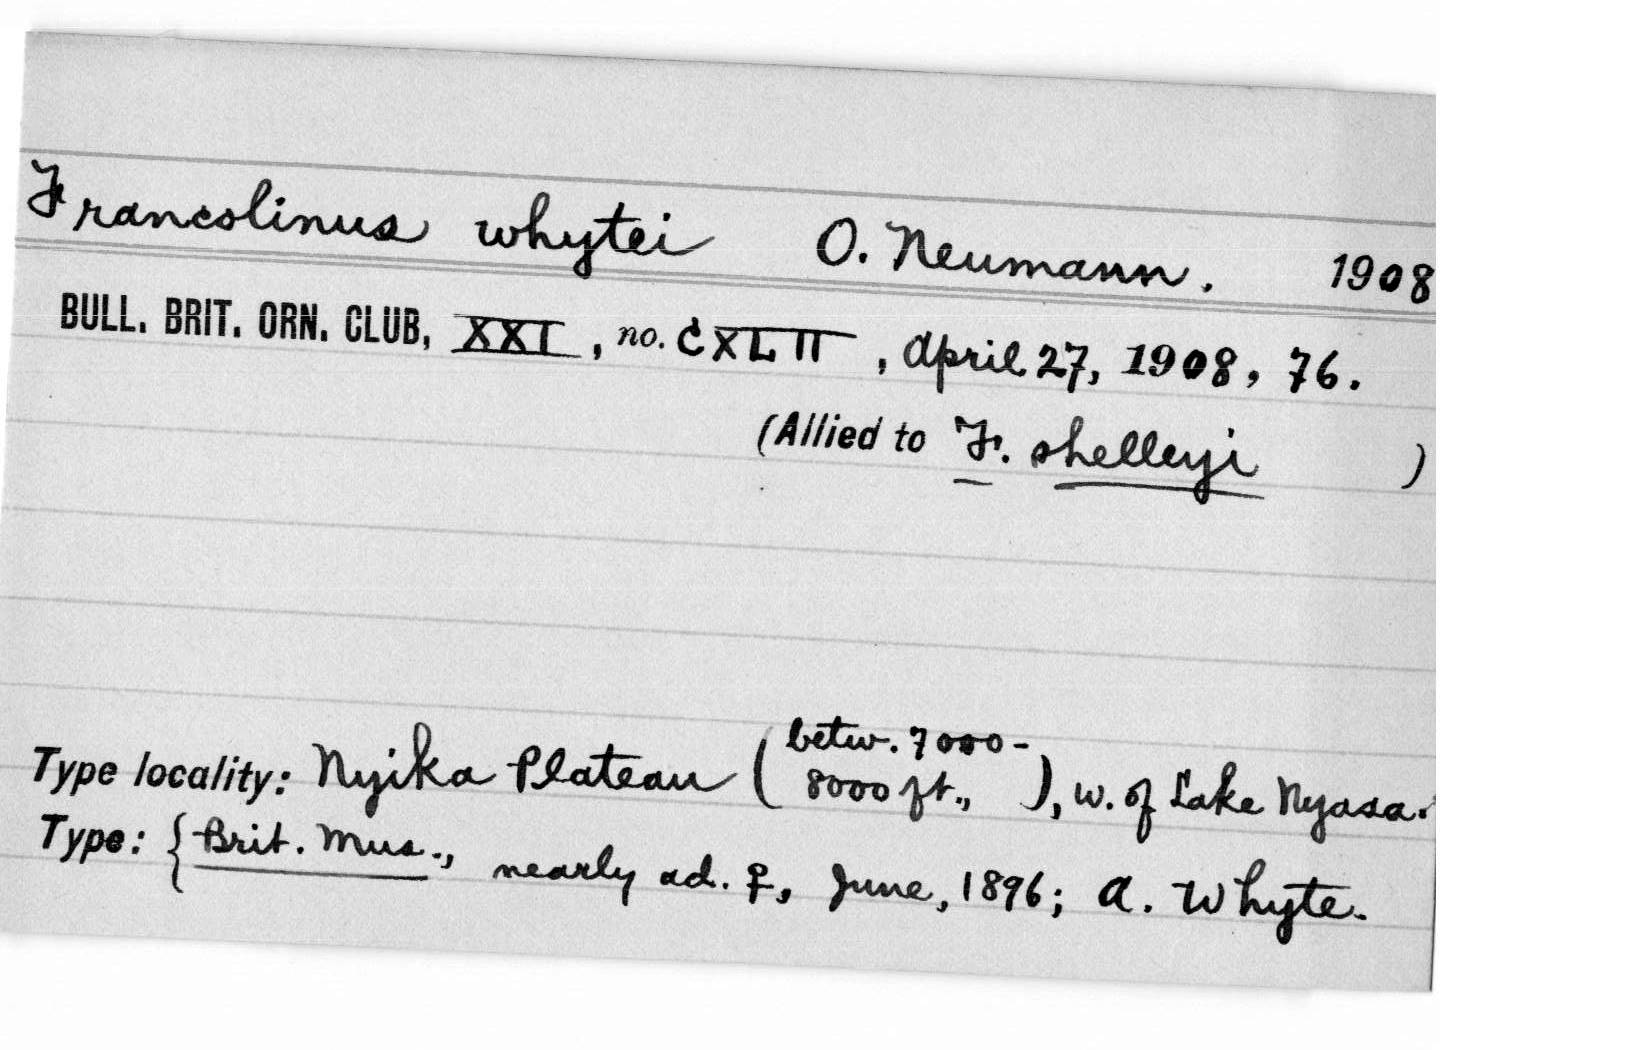 Francolinus whytei O. Neumann. 1908
BULL. BRIT. ORN. CLUB, XXI, no. CXLII, April 27, 1908, 76.
(Allied to F. shelleyi )
Type locality: Nyika Plateau (betw. 7000-8000 ft., ), w. of Lake Nyasa.
Type: {Brit. Mus., nearly ad. ♀, June, 1896; A. Whyte.